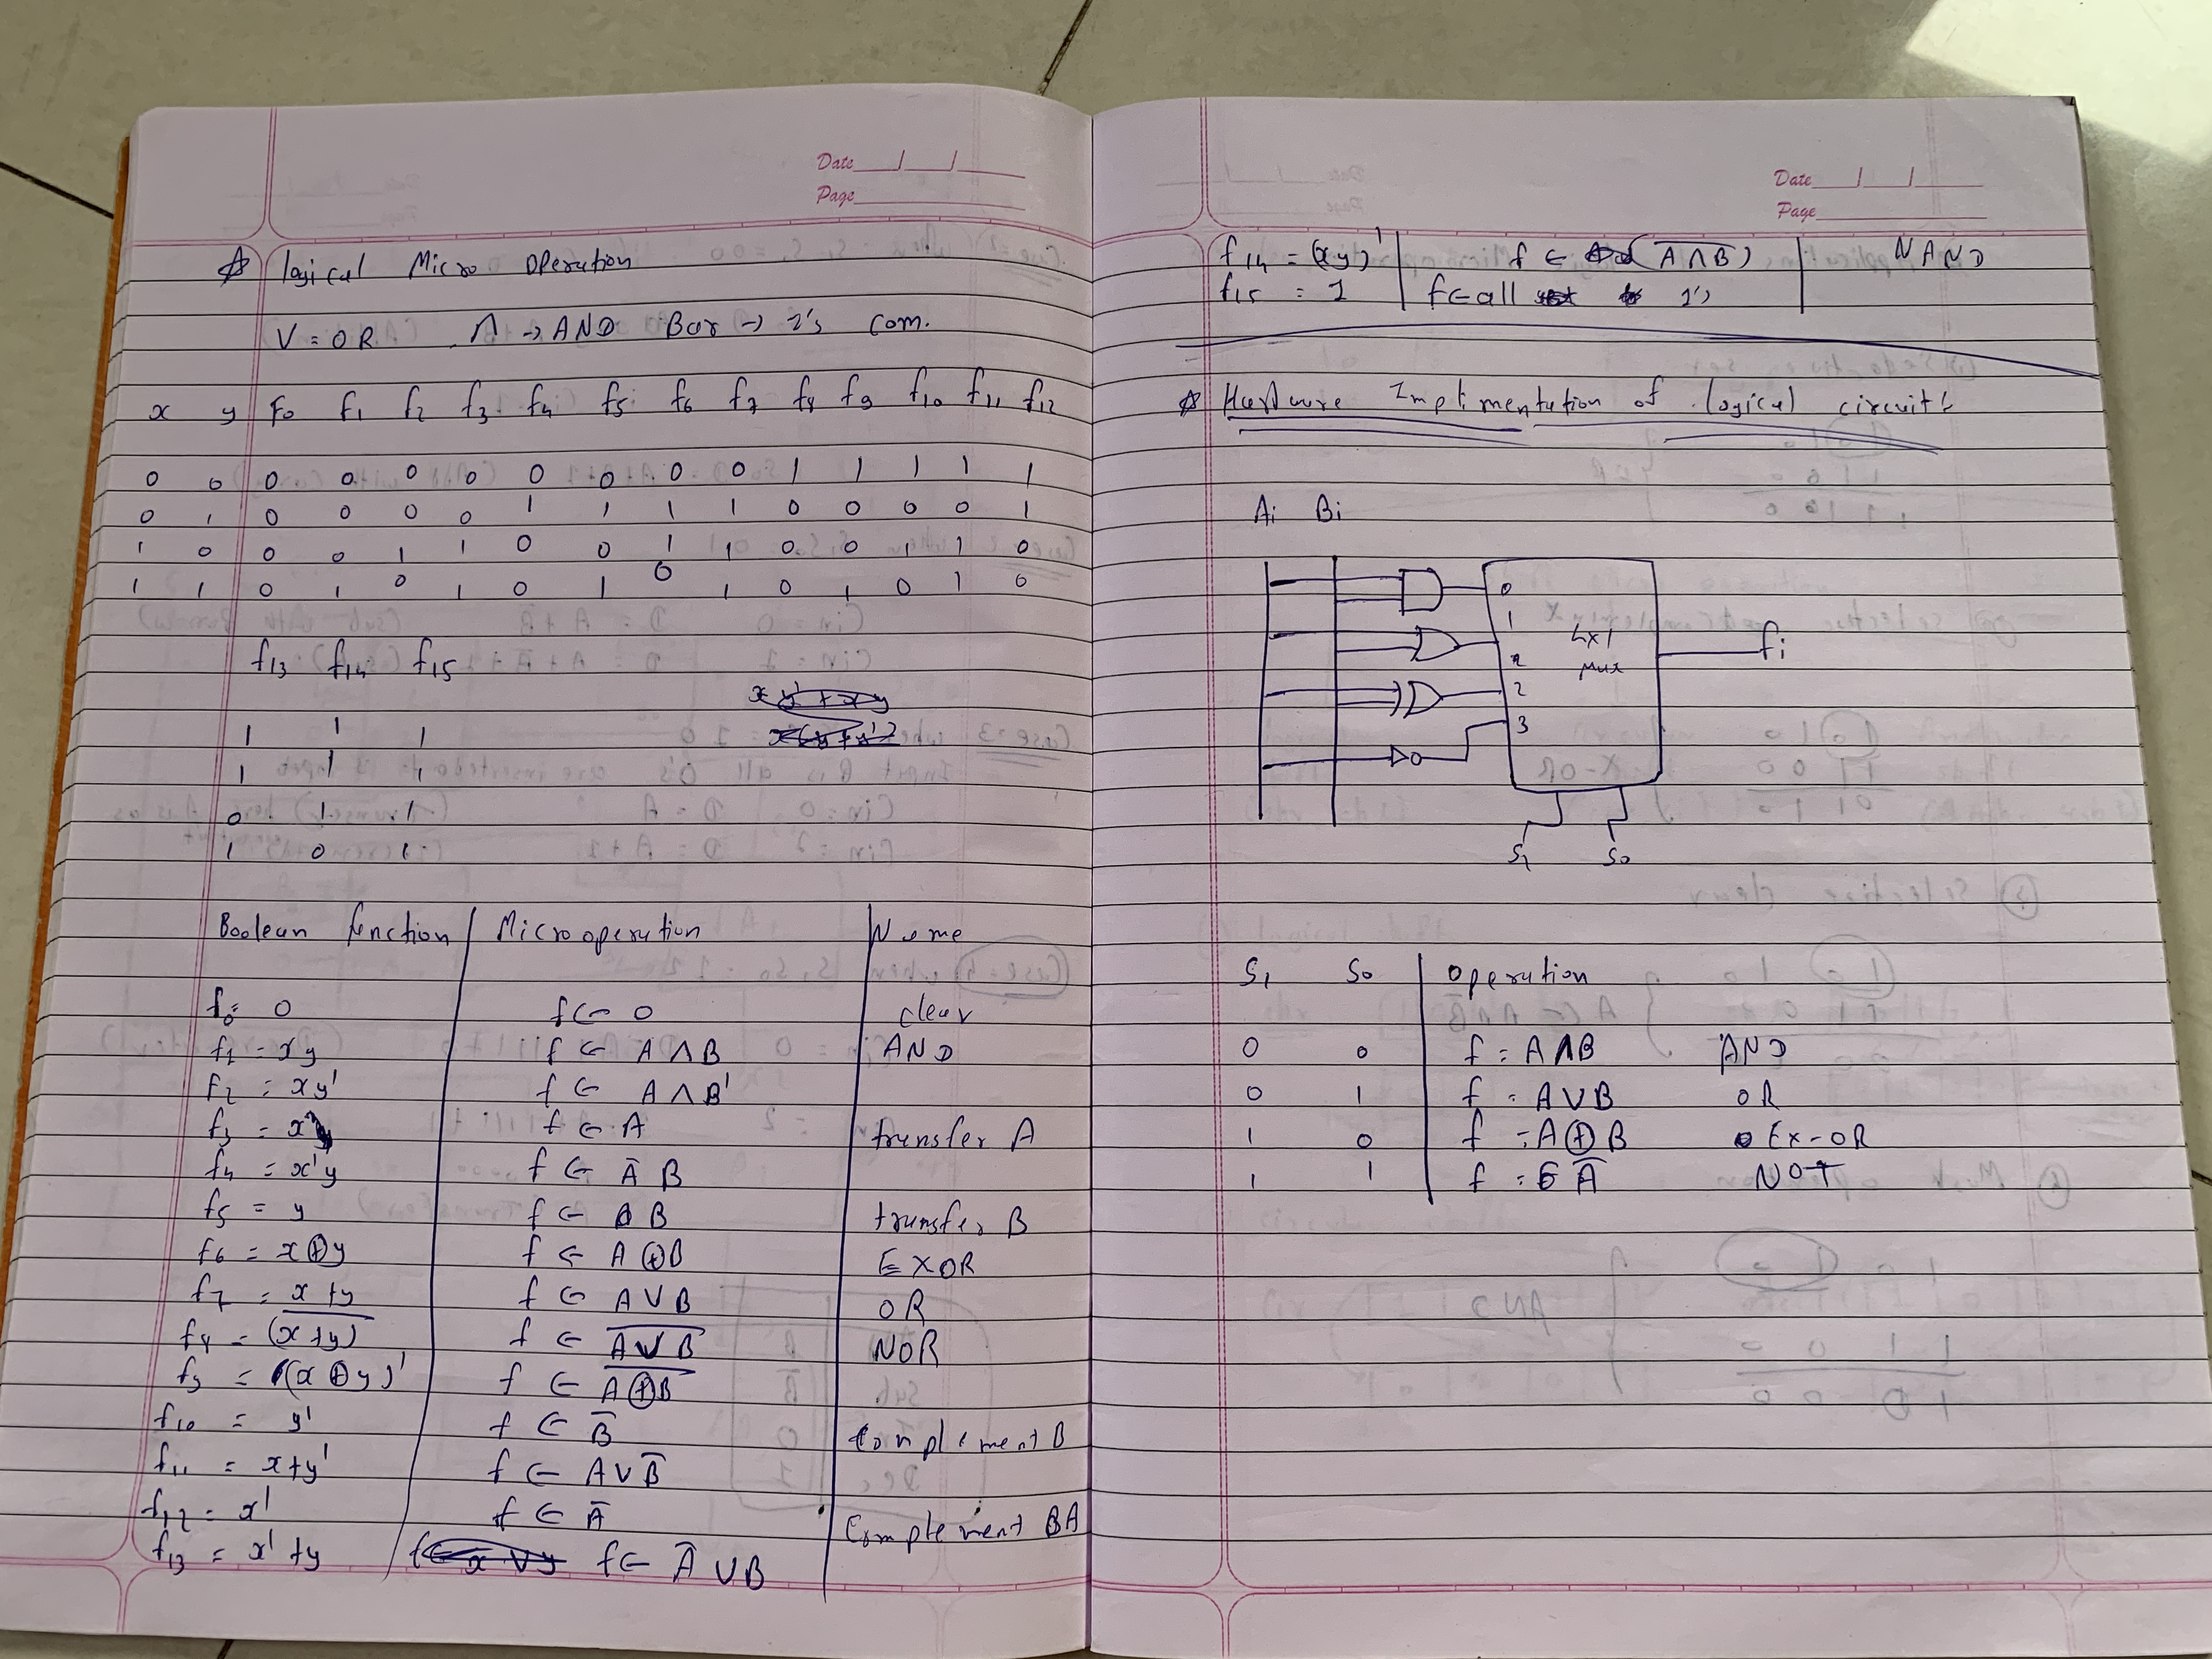 Date
Page
logical Micro Operation
V = OR Λ → AND Bar → 1's com.
x y F0 f1 f2 f3 f4 f5 f6 f7 f8 f9 f10 f11 f12
0 0 0 0 0 0 0 0 0 0 1 1 1 1 1
0 1 0 0 0 0 1 1 1 1 0 0 0 0 1
1 0 0 0 1 1 0 0 1 1 0 0 1 1 0
1 1 0 1 0 1 0 1 0 1 0 1 0 1 0
f13 f14 f15
1 1 1
1 1 1
0 1 1
1 0 1
Boolean function Microoperation Name
f0 = 0 f ← 0 clear
f1 = xy f ← A Λ B AND
f2 = xy' f ← A Λ B'
f3 = x f ← A transfer A
f4 = x'y f ← A̅ B
f5 = y f ← B transfer B
f6 = x⊕y f ← A ⊕ B EXOR
f7 = x+y f ← A V B OR
f8 = \overline{(x+y)} f ← \overline{A V B} NOR
f9 = (x ⊕ y)' f ← \overline{A ⊕ B}
f10 = y' f ← B̅ Complement B
f11 = x+y' f ← A V B̅
f12 = x' f ← A̅ Complement A
f13 = x' + y f ← A̅ U B
Date
Page
f14 = (xy)' f ← (\overline{A Λ B}) NAND
f15 = 1 f ← all 1's
Hardware Implimentation of logical circuit:
Ai Bi
0
1
4x1
mux
fi
2
3
S1 S0
S1 S0 Operation
0 0 f = A Λ B AND
0 1 f = A V B OR
1 0 f = A ⊕ B Ex-OR
1 1 f = A̅ NOT